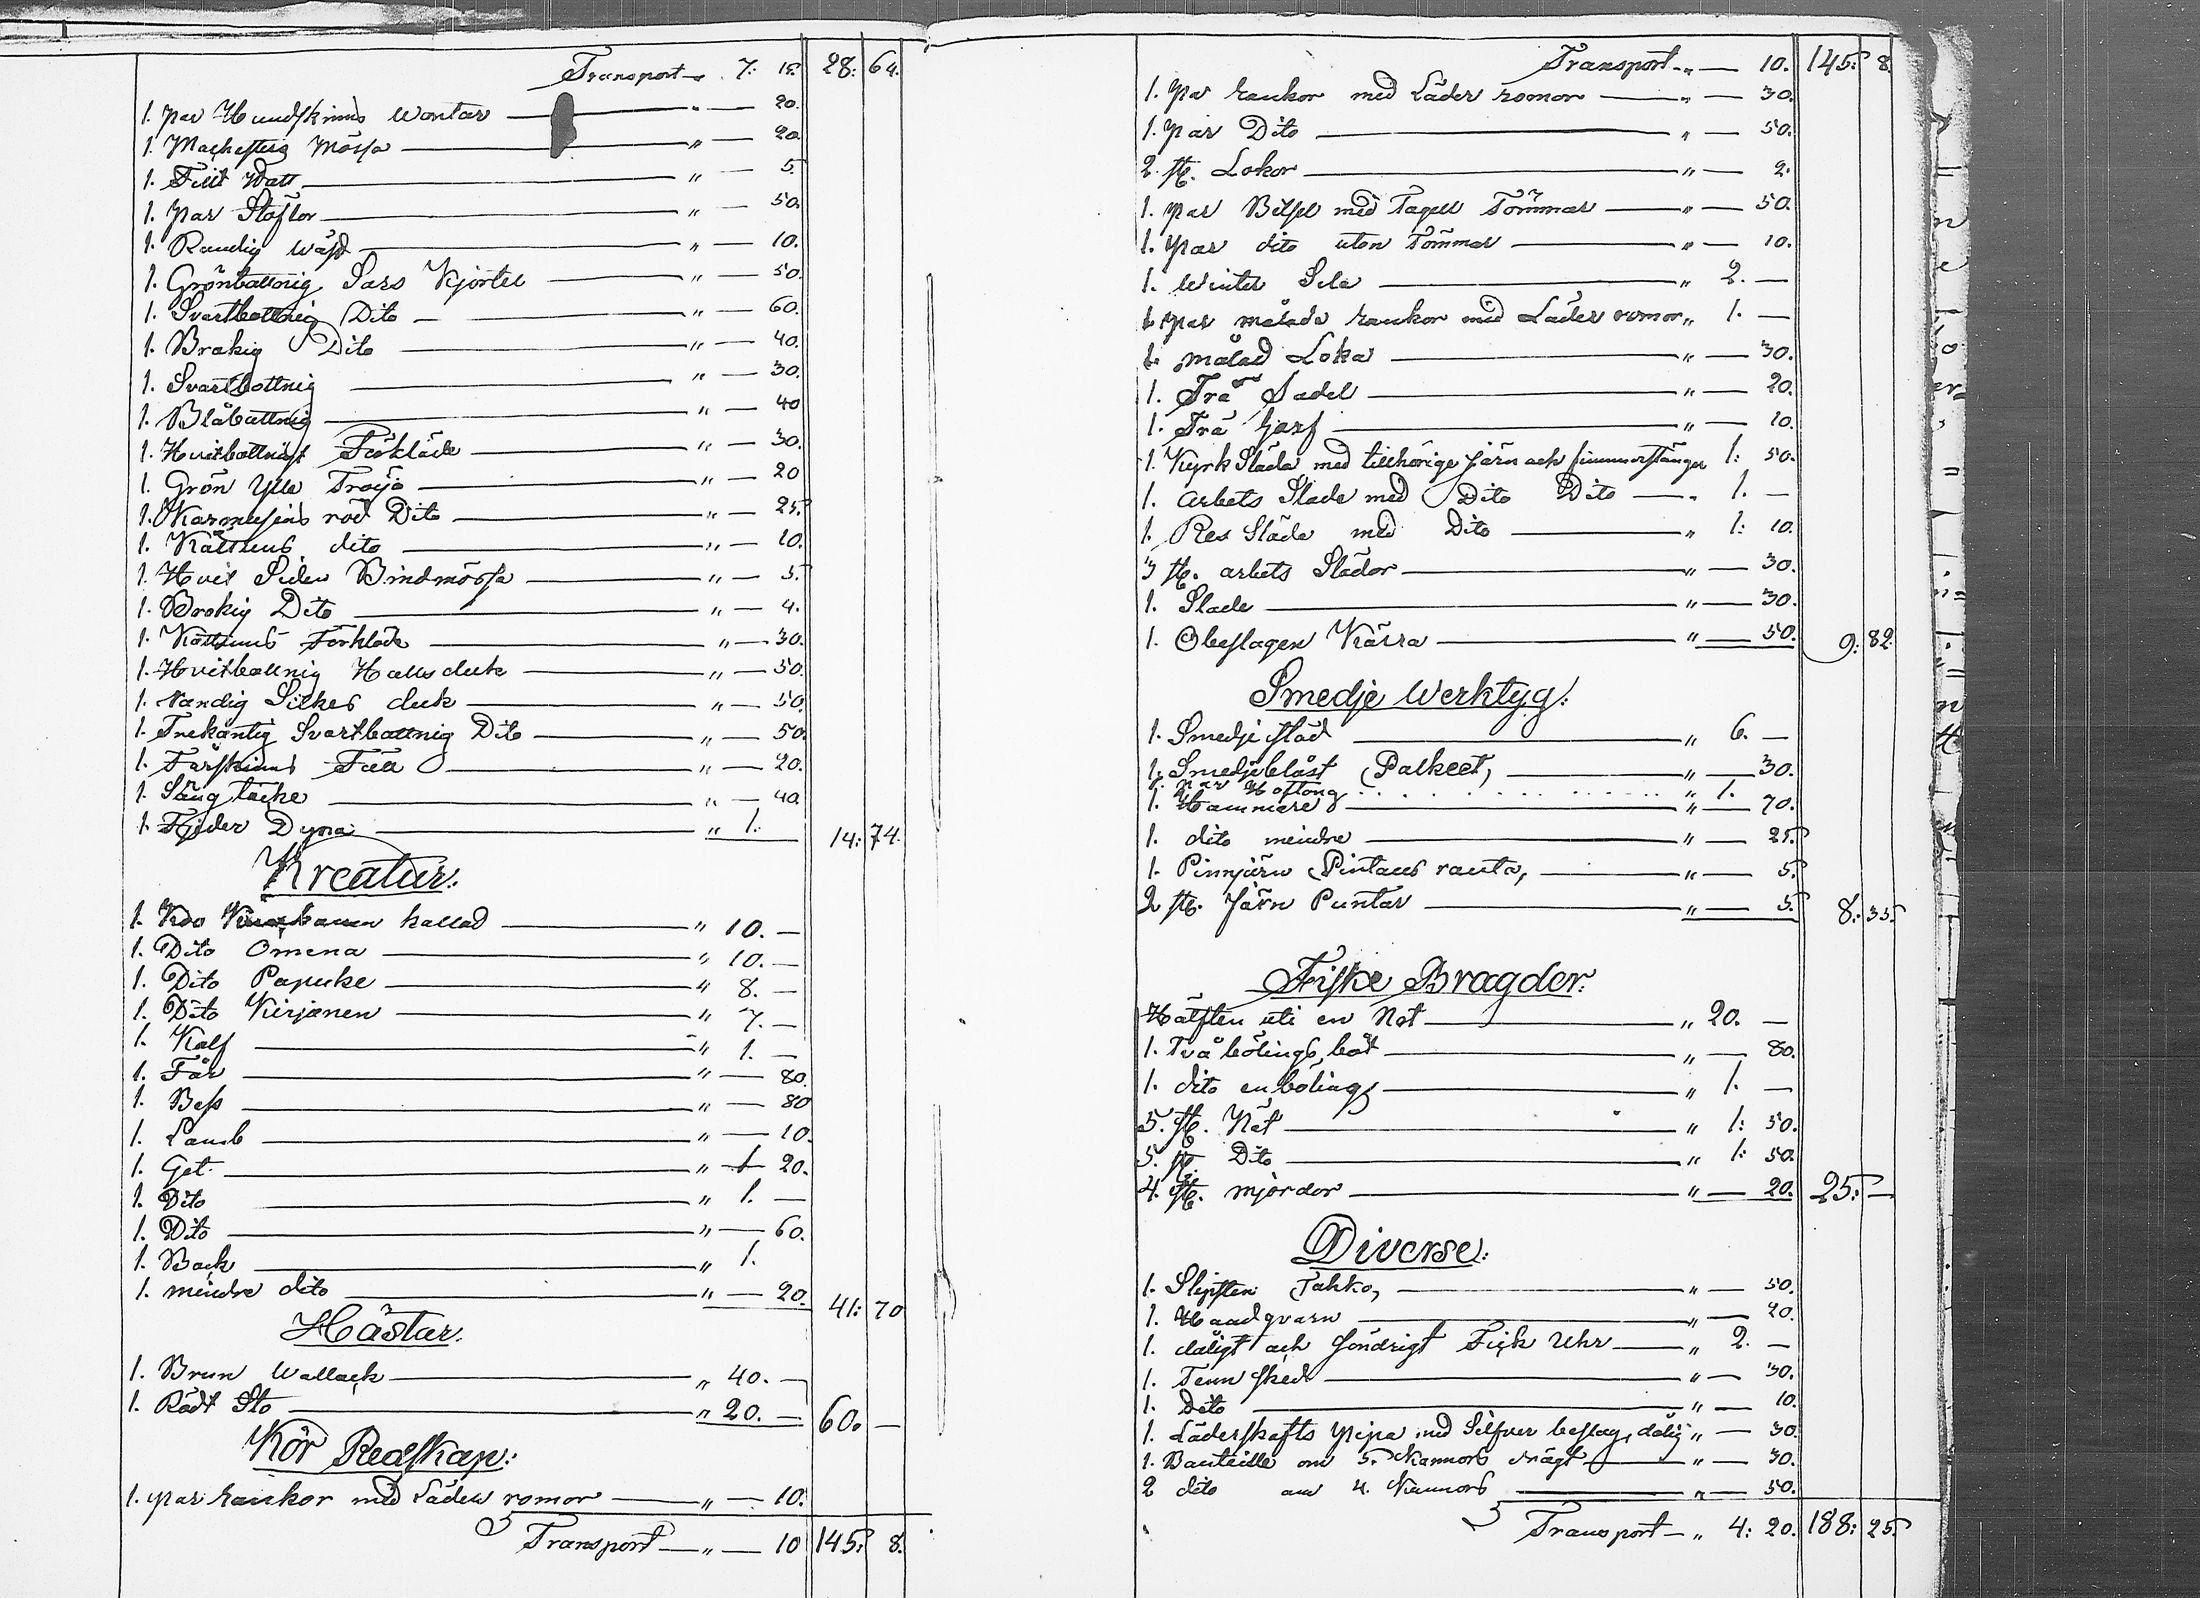 Transport — 7: 15. 28: 64.
1. par Hundskinns Wantar — " — 20.
1. Machestig Mössa — " — 20.
1. Filt Hatt — " — 5.
1. par Stöflor — " — 50.
1. Randig Wäst — " — 10.
1. Grönbottnig Sars Kjortel — " — 50.
1. Svartbottnig Dito — " — 60.
1. Brokig Dito — " — 40.
1. Svartbottnig — " — 30.
1. Blåbottnig — " — 40
1. Hvitbottnigt Förkläde — " — 30.
1. Grön Ylle Tröija — " — 20
1. Karmusins röd Dito — " — 25.
1. Kattuns dito — " — 10.
1. Hvit Siden Bindmössa — " — 5.
1. Brokig Dito — " — 4.
1. Kattuns Förkläde — " — 30.
1. Hvitbottnig Halls duk — " — 50.
1. Randig Silkes duk — " — 50.
1. Trekantig Svartbottnig Dito — " — 50.
1. Fårskinns Fäll — " — 20.
1. Säng täcke — " — 40.
1. Fjeder Dyna — " 1. 14: 74.
Kreatur:
1. Ko kallad — " 10. —
1. Dito Omena — " 10. —
1. Dito Papuke — " 8. —
1. Dito Kirjanen — " 7. —
1. Kalf — " 1. —
1. Får — " — 80.
1. Bess — " — 80
1. Lamb — " — 10.
1. Get. — " — 20.
1. Dito — " 1. —
1. Dito — " — 60.
1. Back — " 1.
1. mindre dito — " — 20. 41: 70
Hästar.
1. Brun Wallack — " 40. —
1. Rödt Sto — " 20. — 60. —
Kör Redskap:
1. par rankor med Läder romor — " — 10.
Transport — " — 10 145: 8.
Transport — " — 10. 145: 8.
1. par rankor med Läder romor — " — 30.
1. par Dito — " — 50.
2. st. Lokor — " — 2.
1. par Bitsel med Tagell Tömmar — " — 50.
1. par dito utan Tömmar — " — 10.
1. Winter Sela — " 2. —
1. par målade rankor med Läder romor " 1. —
1. målad Loka — " — 30.
1. Trä Sadel — " — 20.
1. Trä — " — 10.
1. Kyrk Släda med tillhörige järn och fimmerstänger 1: 50.
1. arbets Släde med Dito Dito — " 1. —
1. Res Släde med Dito — " 1: 10.
3 st. arbets Slädor — " — 30.
1. Slade — " — 30.
1. Obeslagen Kärra — " — 50. 9: 82.
Smedje Werktyg:
1. Smedje städ — " 6. —
1. Smedjebläst (Palkeet, — " — 30.
1. par Hoftång " 1.
1. Hammare — " — 70.
1. dito mindre — " — 25.
1. Pinnjärn (Pintaus rauta, — " — 5.
2 st. Järn Puntar — " — 5. 8: 35.
Fiske Bragder:
Hälften uti en Not — " 20. —
1. Två bölings båt — " — 80.
1. dito en bölings — " 1. —
5. st. Nät — " 1: 50.
5. st. Dito — " 1: 50.
4. st. mjärdor — " — 20. 25: —
Diverse:
1. Slipsten (Tahko, — " — 50.
1. Haadqvarn — " — 20.
1. dåligt och söndrigt Fick Uhr — " 2. —
1. Tenn sked — " — 30.
1. Dito — " — 10.
1. Läderskafts pipa med Silfver beslag, dålig " — 30.
1. Bouteille om 5. Kannors drägt — " — 30.
2 dito om 4. Kannors — " — 50.
Transport — " 4: 20. 188: 25.